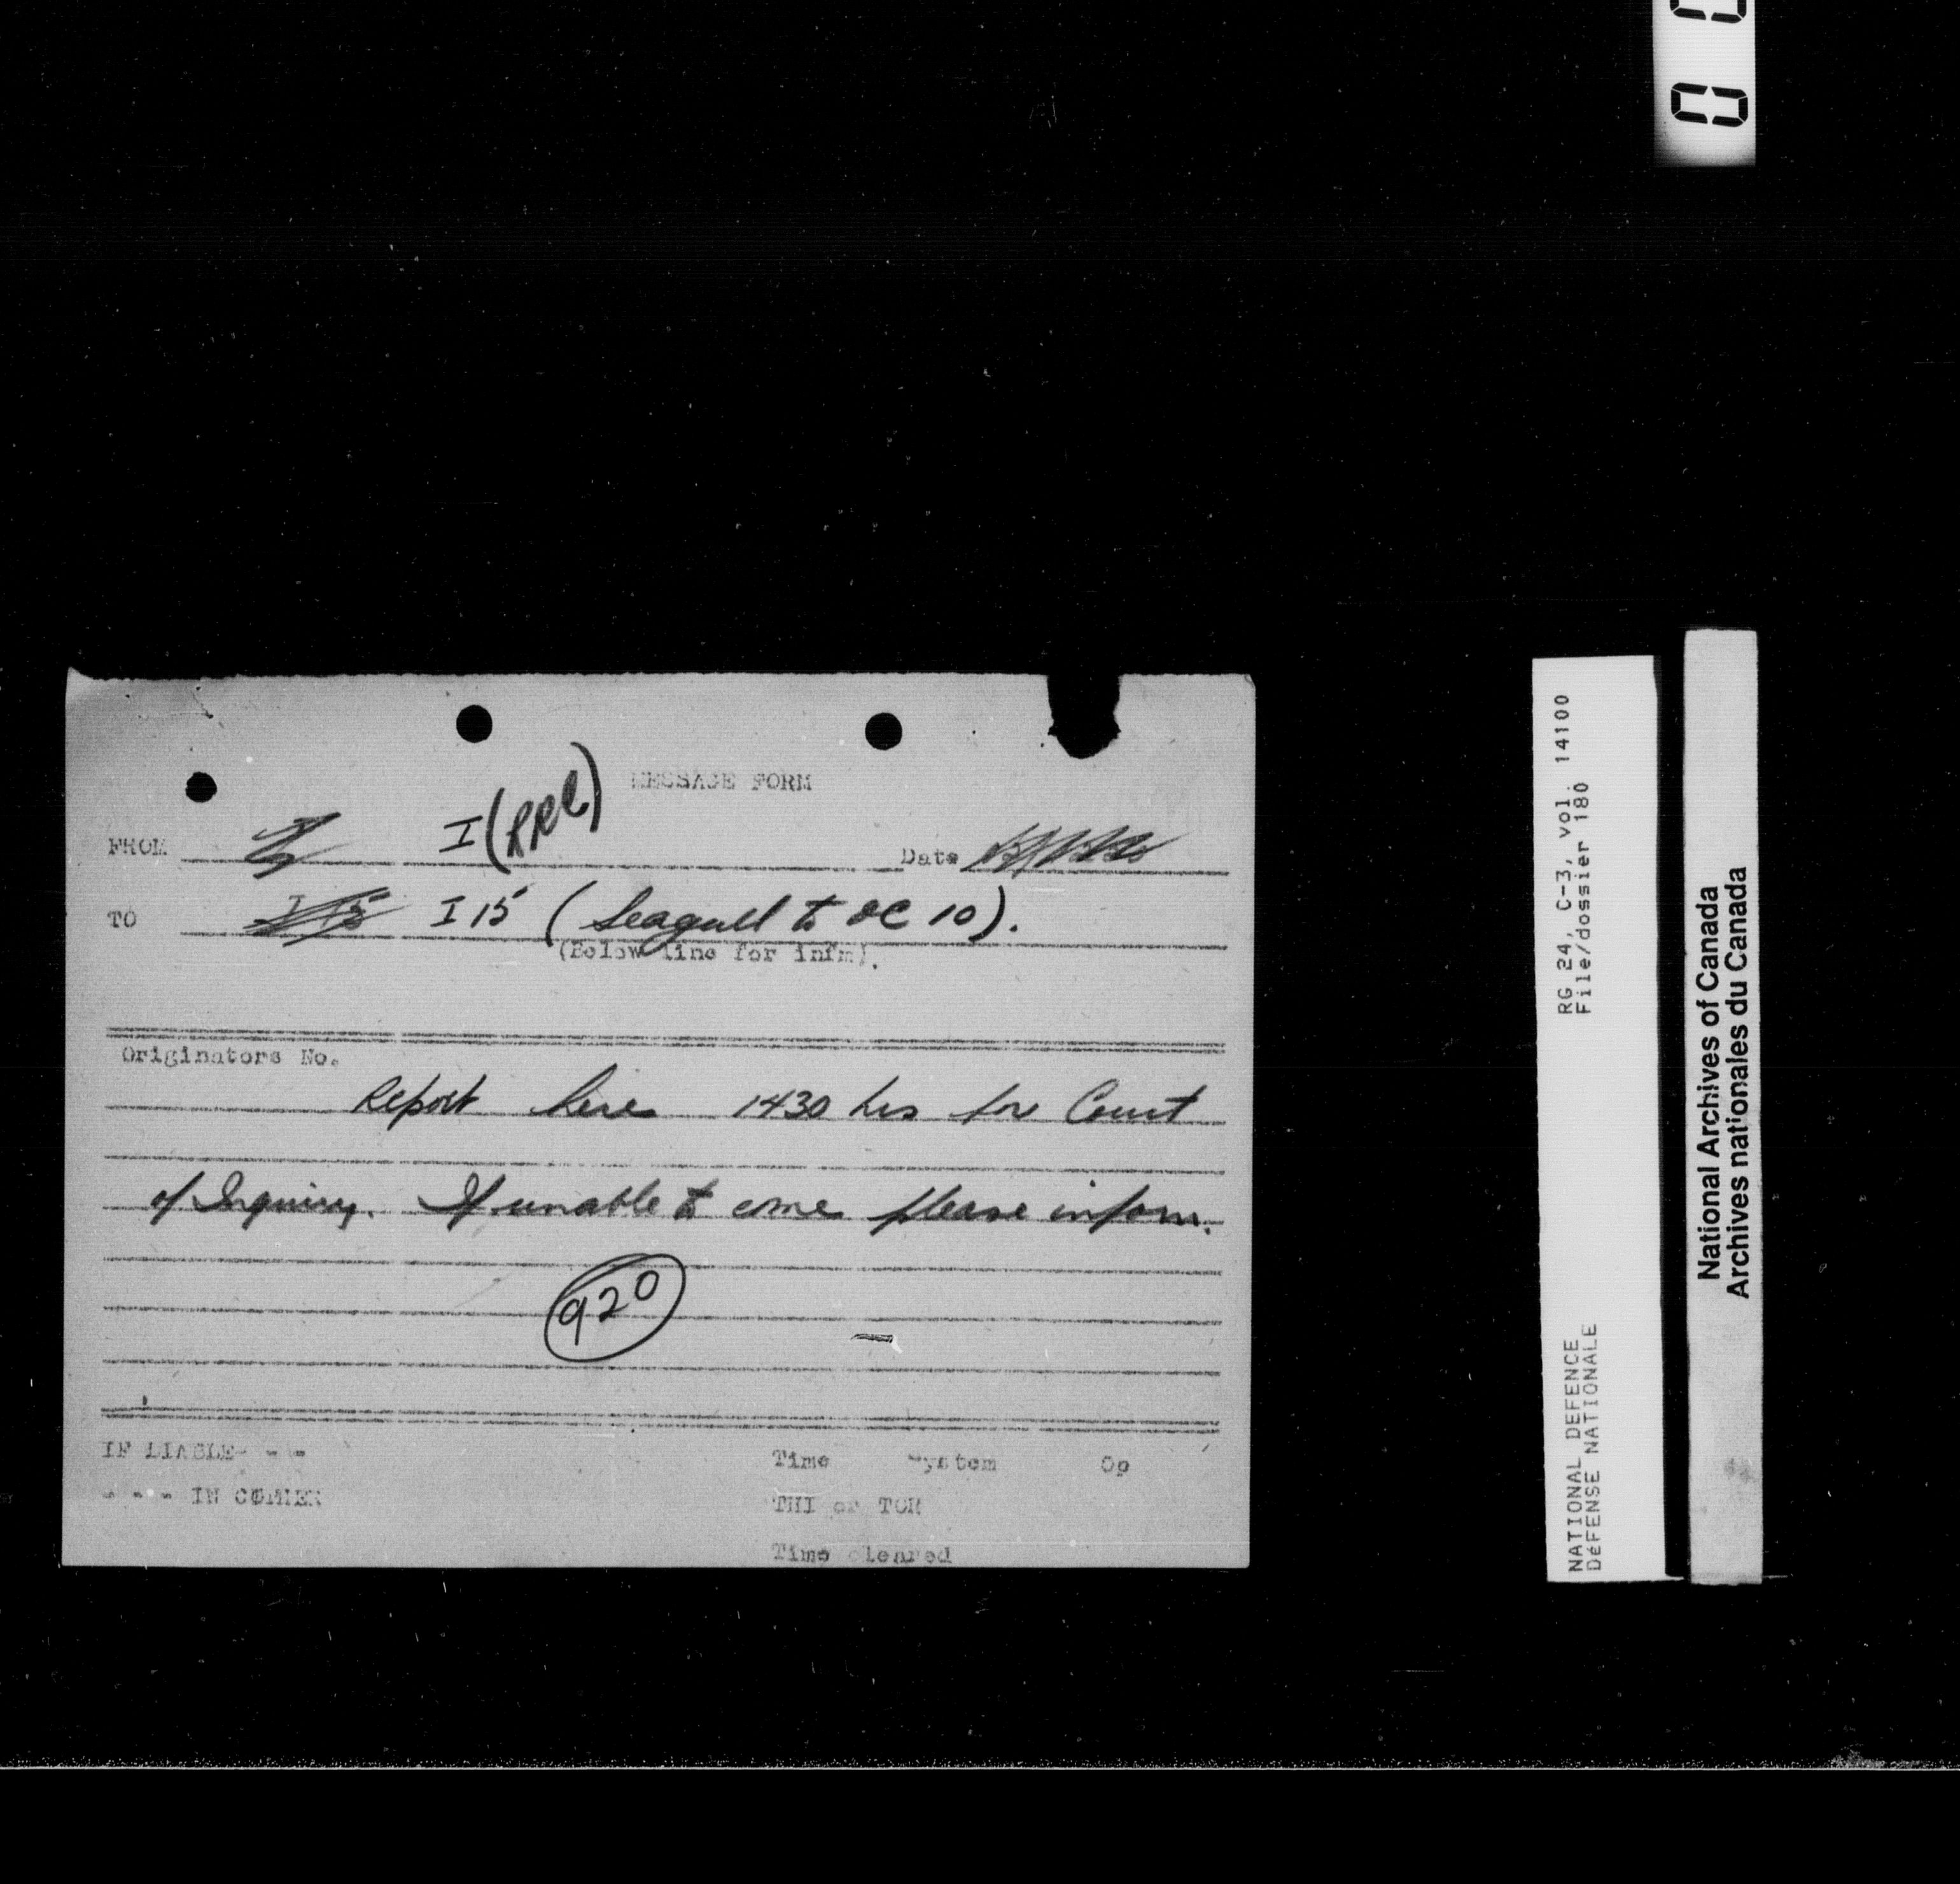 MESSAGE FORM
FROM I (RRC) Date
TO I 15 (Seagull to OC 10).
(Below line for infm).
Originators No.
Report here 1430 hrs for Court
of Inquiry. If unable to come please inform.
920
IF LIABLE- - - Time System Op
- - - IN COMMER THI or TOR
Time cleared
RG 24, C-3, vol. 14100
File/dossier 180
NATIONAL DEFENCE
DéFENSE NATIONALE
National Archives of Canada
Archives nationales du Canada